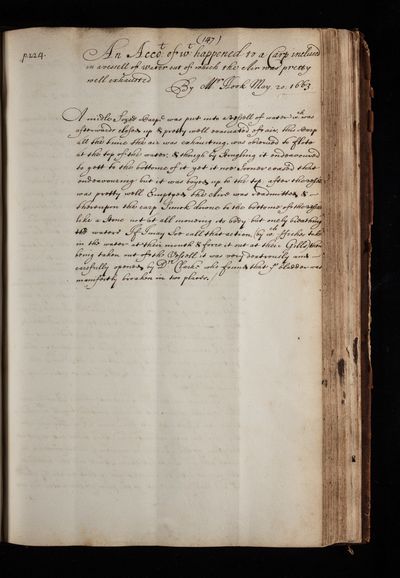 (147)
p.224.
An Acct. of wt. happened to a Carp inclosed
in a vessell of water out of which the Air was pretty
well exhausted
By Mr. Hook May 20. 1663
A midle sized Carpe was put into a vessell of water wch. was
afterwards closed up & pretty well evacuated of air; this Carp
all the time the air was exhausting, was observed to flote
at the top of the water; & though by strugling it endeavoured
to gett to the bottome of it yet it noe sooner ceased that
endeavouring but it was buoyed up to the top. after the vessell
was pretty well Emptyed the Aire was readmitted &
thereupon the carp sunck downe to the bottome of the vessell
like a stone not at all moveing its body but onely breathing
the water If I may soe call that action (by wch. ffishes take
in the water at their mouth & force it out at their Gills) then
being taken out of the Vessell it was very dextrously and
carefully opened by Dr. Clarke who found that ye bladder was
manifestly broaken in two places.